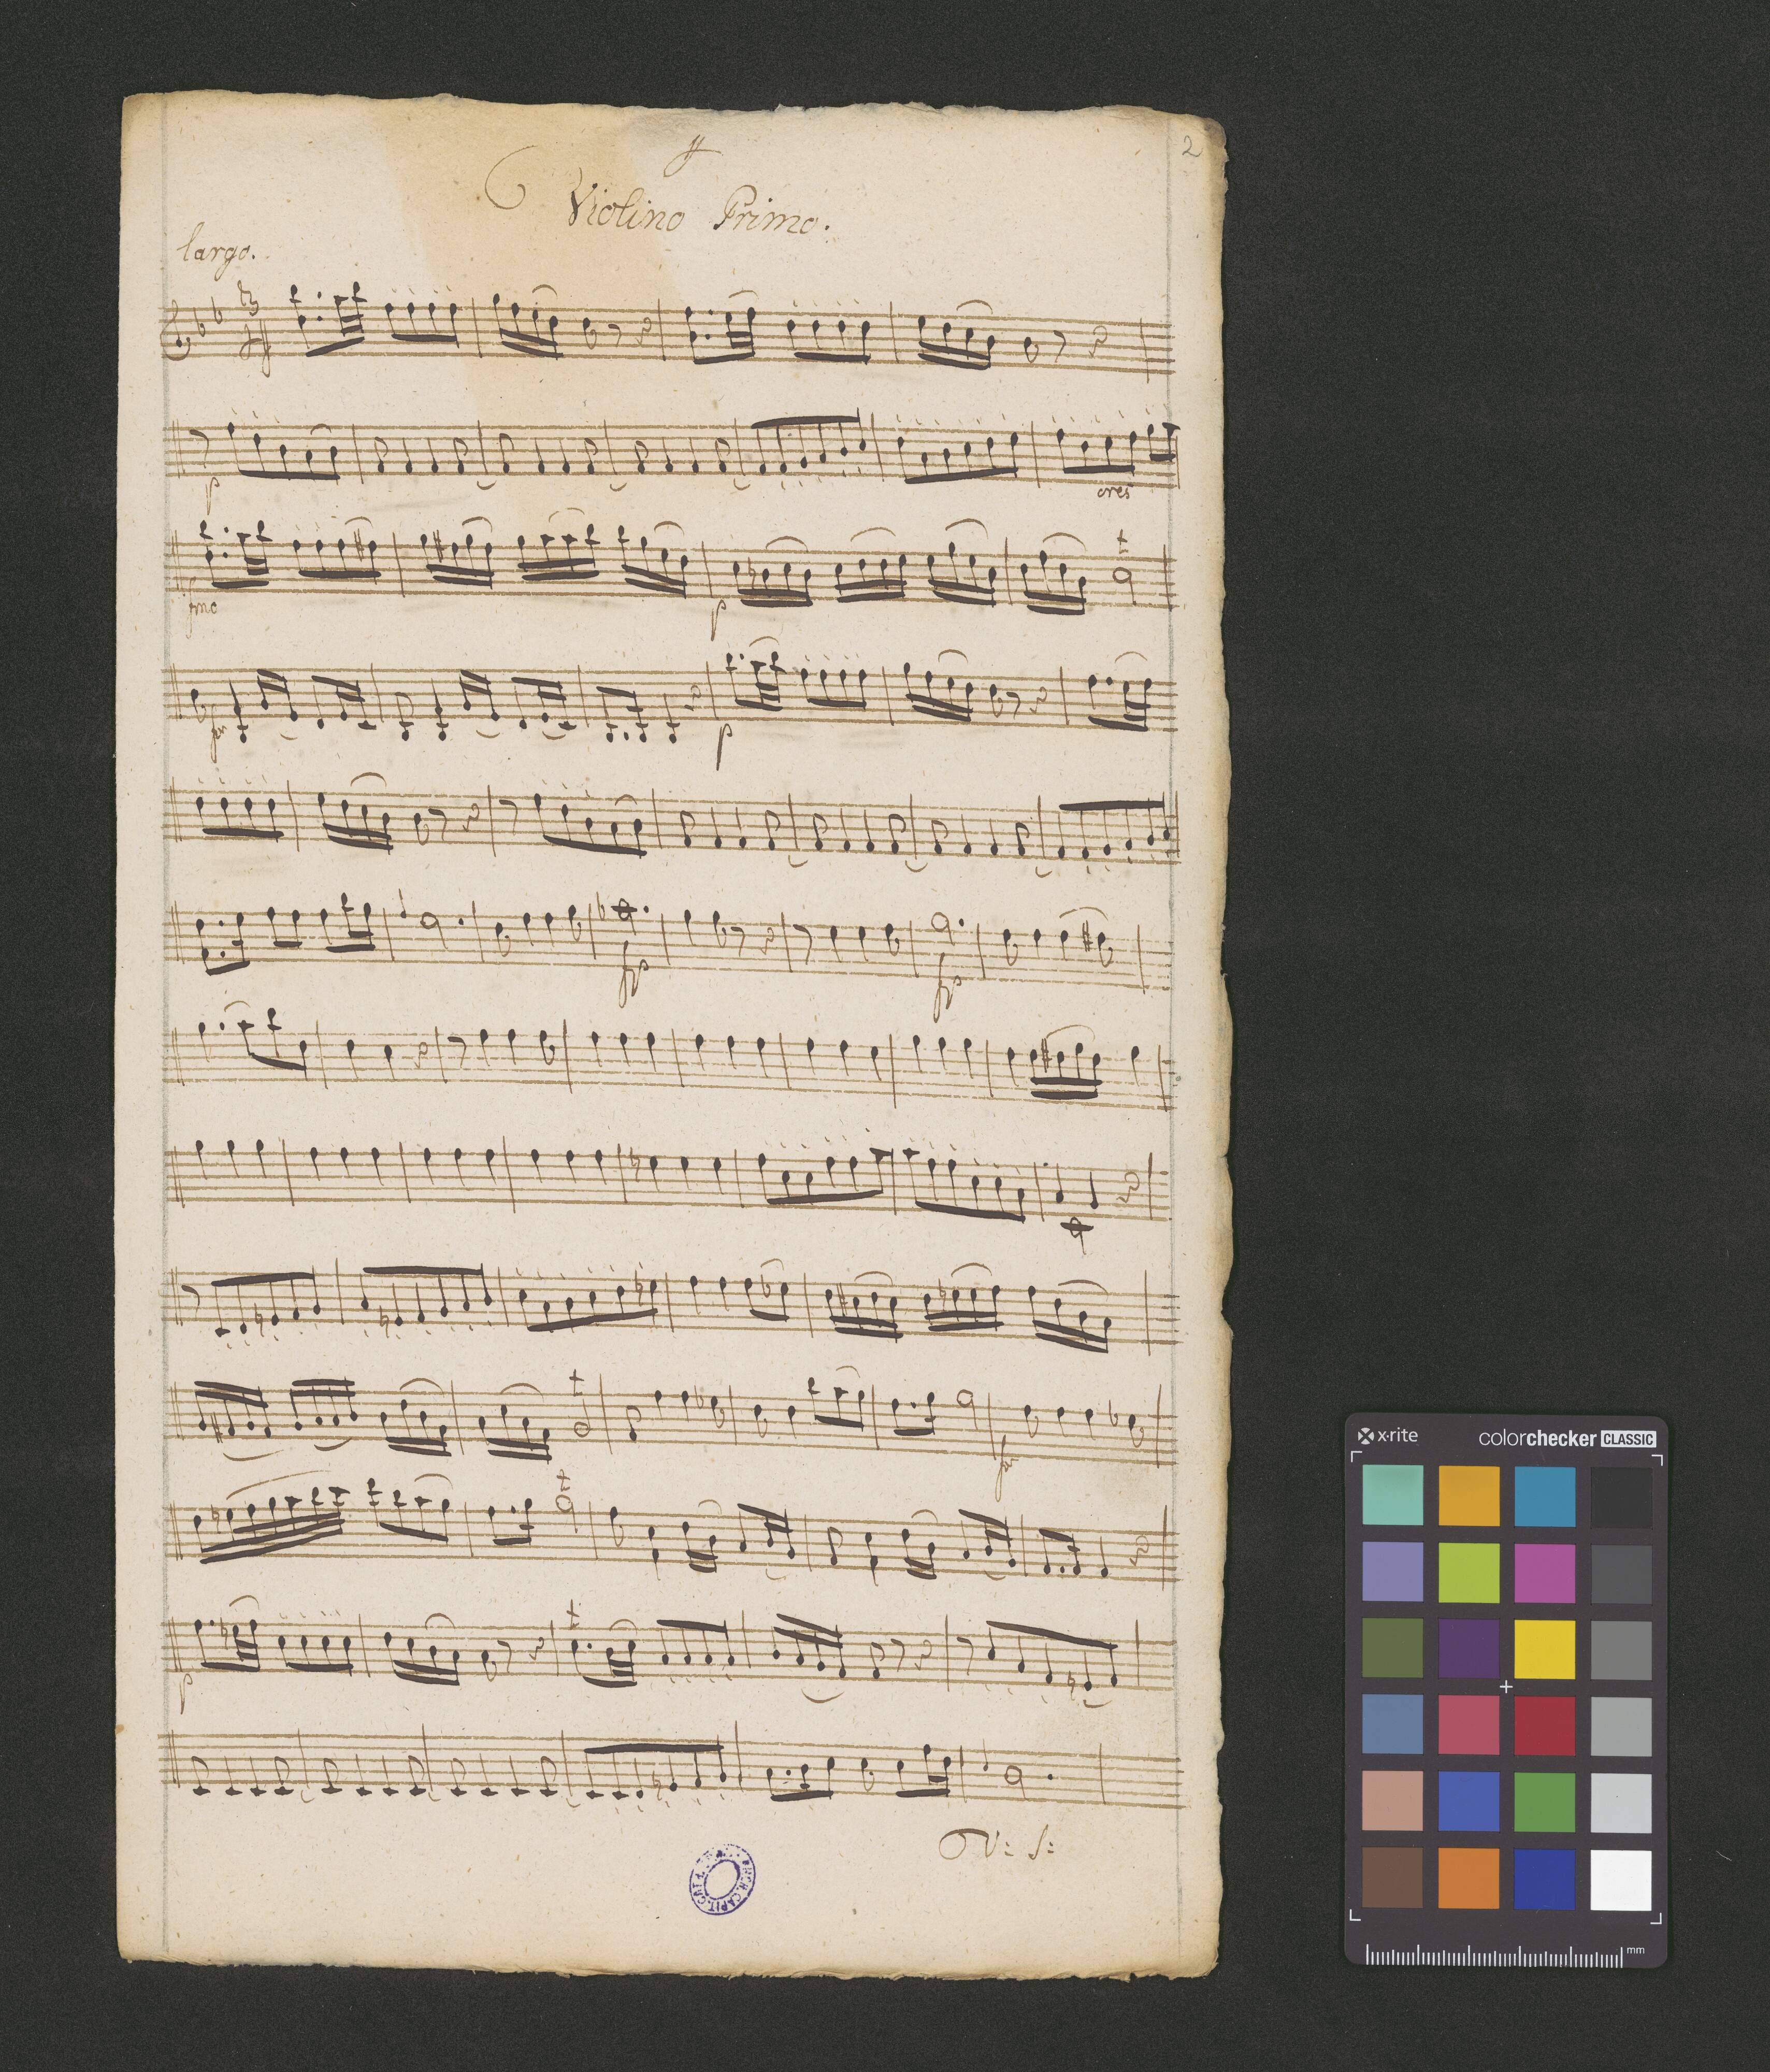 2
Violino Primo.
largo.
p
cres
fmo
p
for
p
fp
fp
for
p
V: S:
ARCH. CAPIT.
x-rite
colorchecker CLASSIC
mm